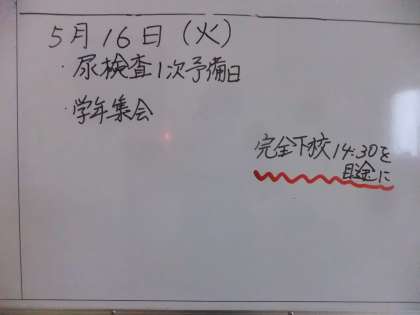 5月16日(火)
・尿検査1次予備日
・学年集会
完全下校14:30を
目途に